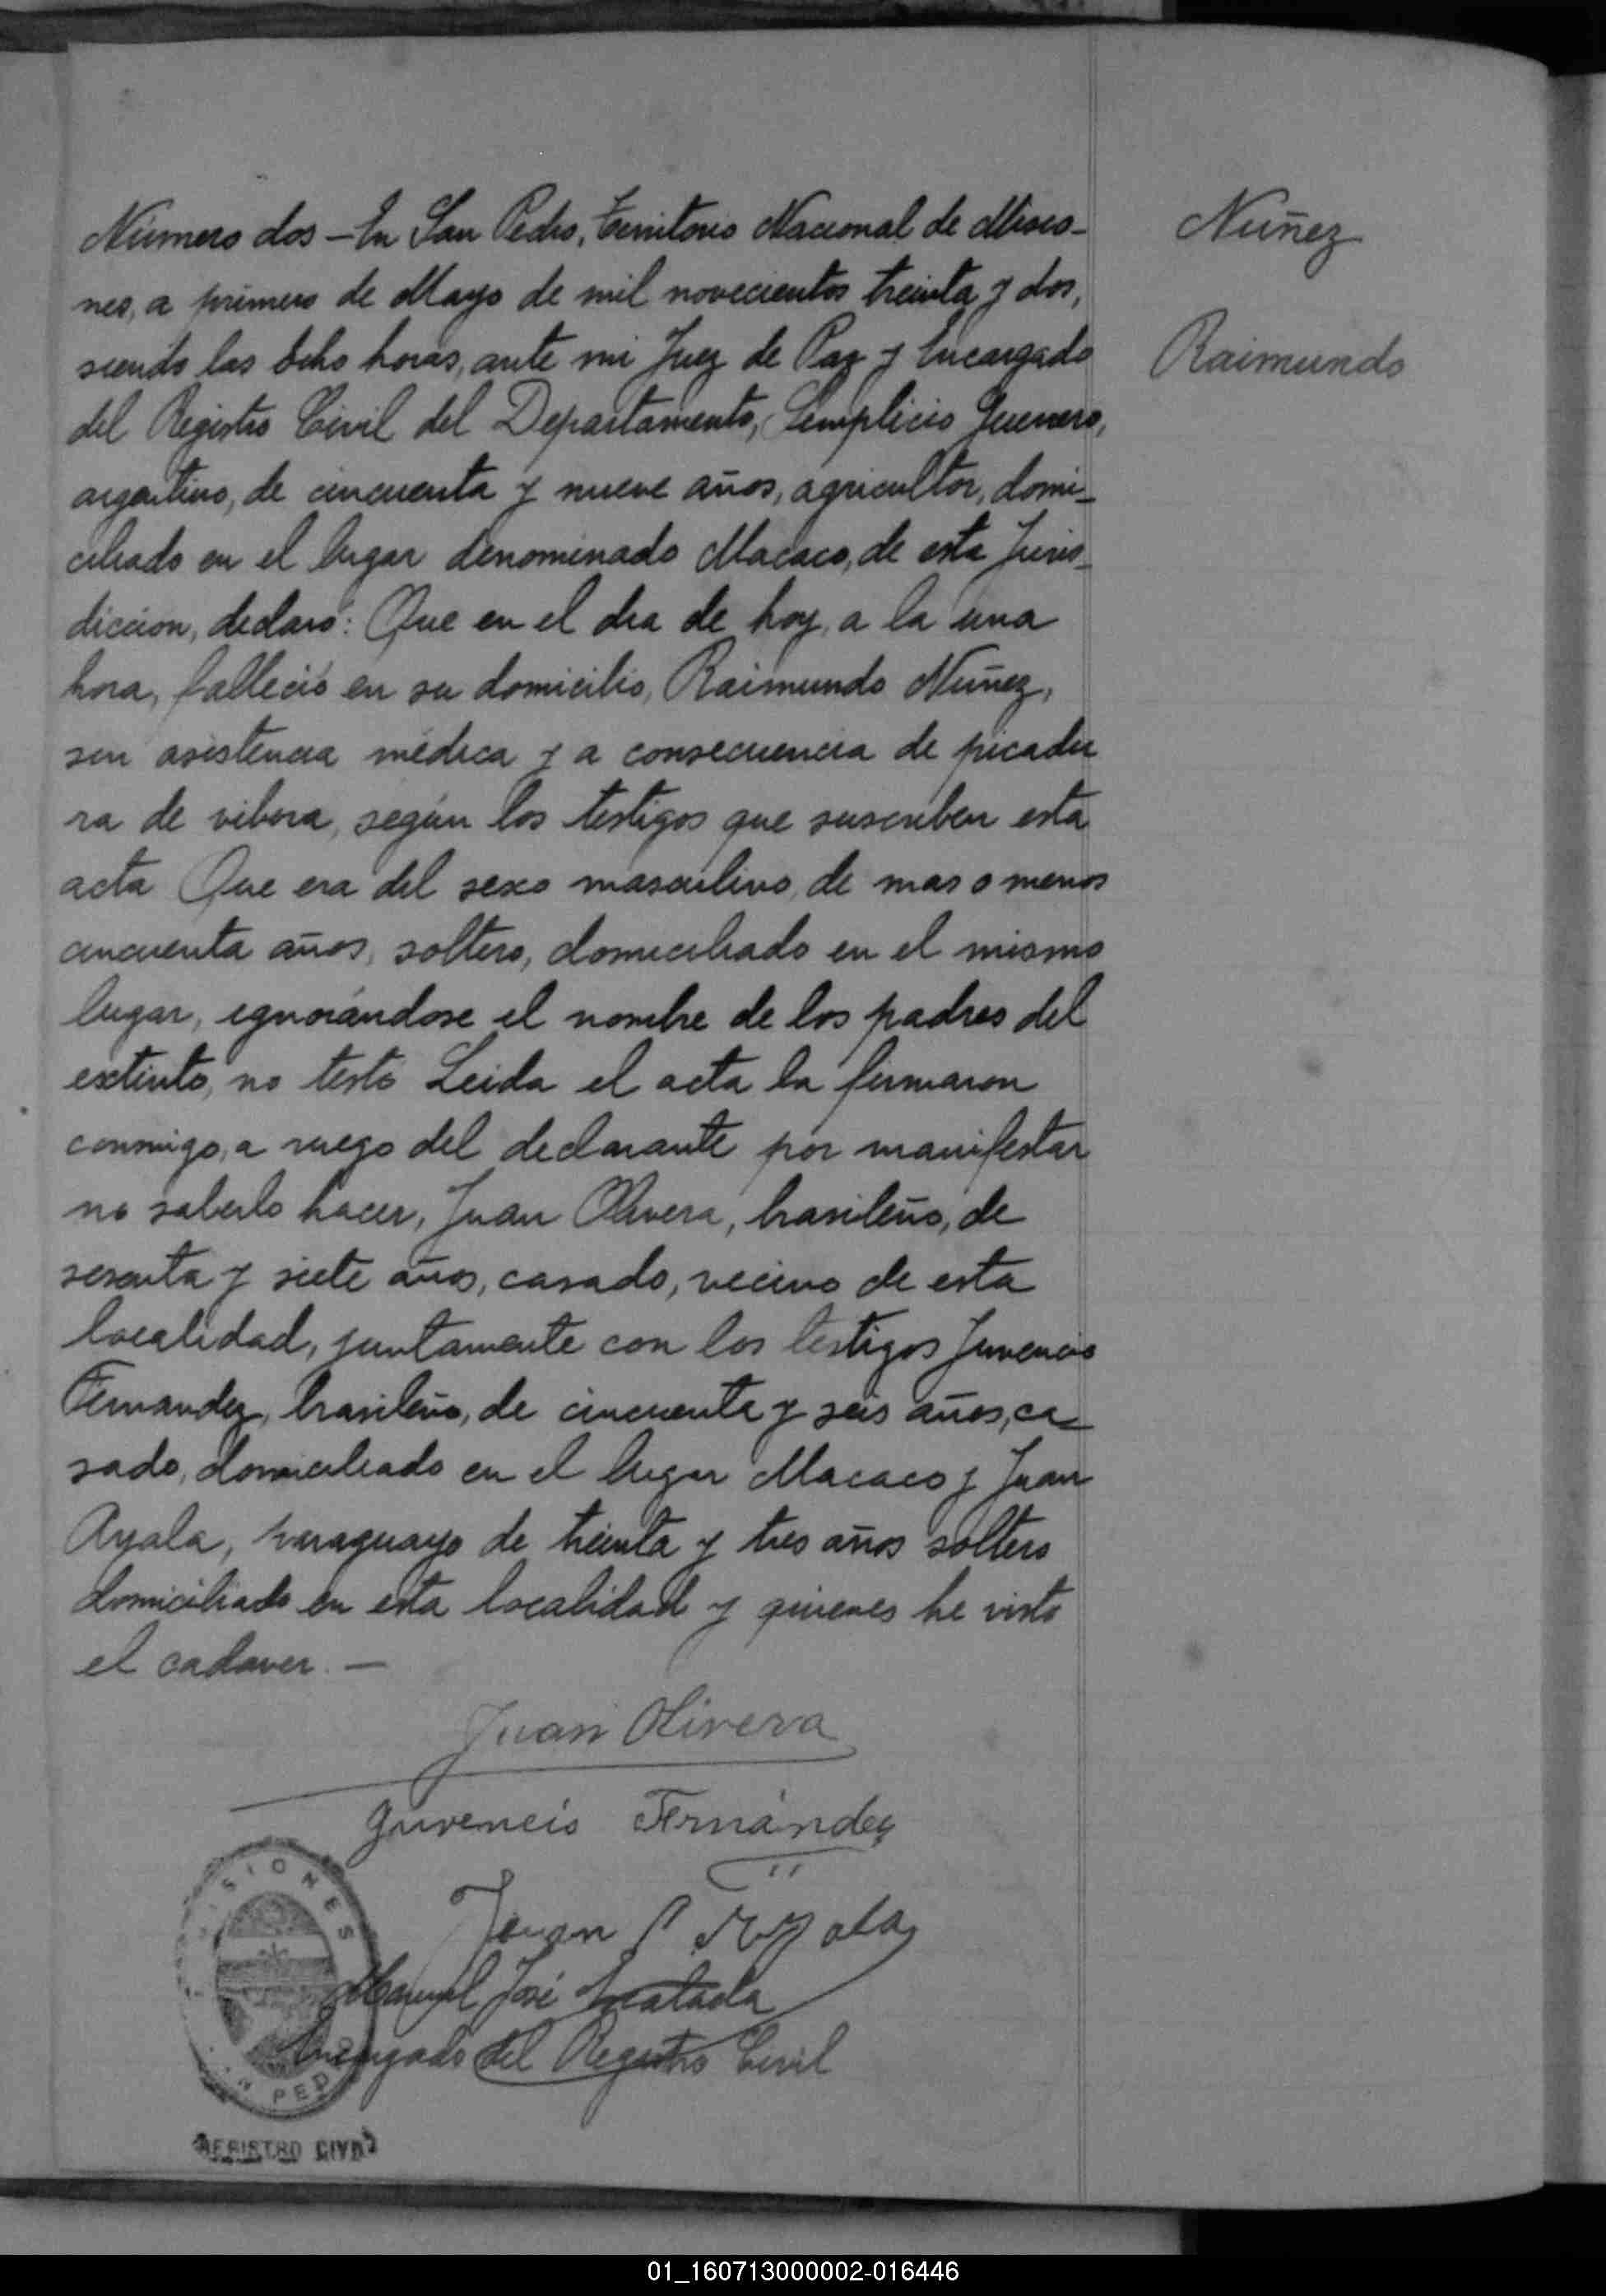 Número dos — En San Pedro, Territorio Nacional de Misio-
nes, a primero de Mayo de mil novecientos treinta y dos,
siendo las ocho horas, ante mi Juez de Paz y Encargado
del Registro Civil del Departamento, Simplicio Guerrero,
argentino, de cincuenta y nueve años, agricultor, domi-
ciliado en el lugar denominado Macaco, de esta Juris-
dicción, declaró: Que en el dia de hoy, a la una
hora, falleció en su domicilio, Raimundo Nuñez,
sin asistencia médica y a consecuencia de picadu
ra de vibora, según los testigos que suscriben esta
acta Que era del sexo masculino, de mas o menos
cincuenta años, soltero, domiciliado en el mismo
lugar, ignorándose el nombre de los padres del
extinto, no testó Leida el acta la firmaron
conmigo, a ruego del declarante por manifestar
no saberlo hacer, Juan Olivera, brasileño, de
sesenta y siete años, casado, vecino de esta
localidad, juntamente con los testigos Juvencio
Fernandez, brasileño, de cincuenta y seis años, ca
sado, domiciliado en el lugar Macaco y Juan
Ayala, paraguayo de treinta y tres años soltero
domiciliado en esta localidad y quienes he visto
el cadaver. —
Nuñez
Raimundo
Juan Olivera
Juvencio Fernández
Juan Ayala
Manuel José
Encargado del Registro Civil
MISIONES
PEDRO
REGISTRO CIVIL
01_160713000002-016446